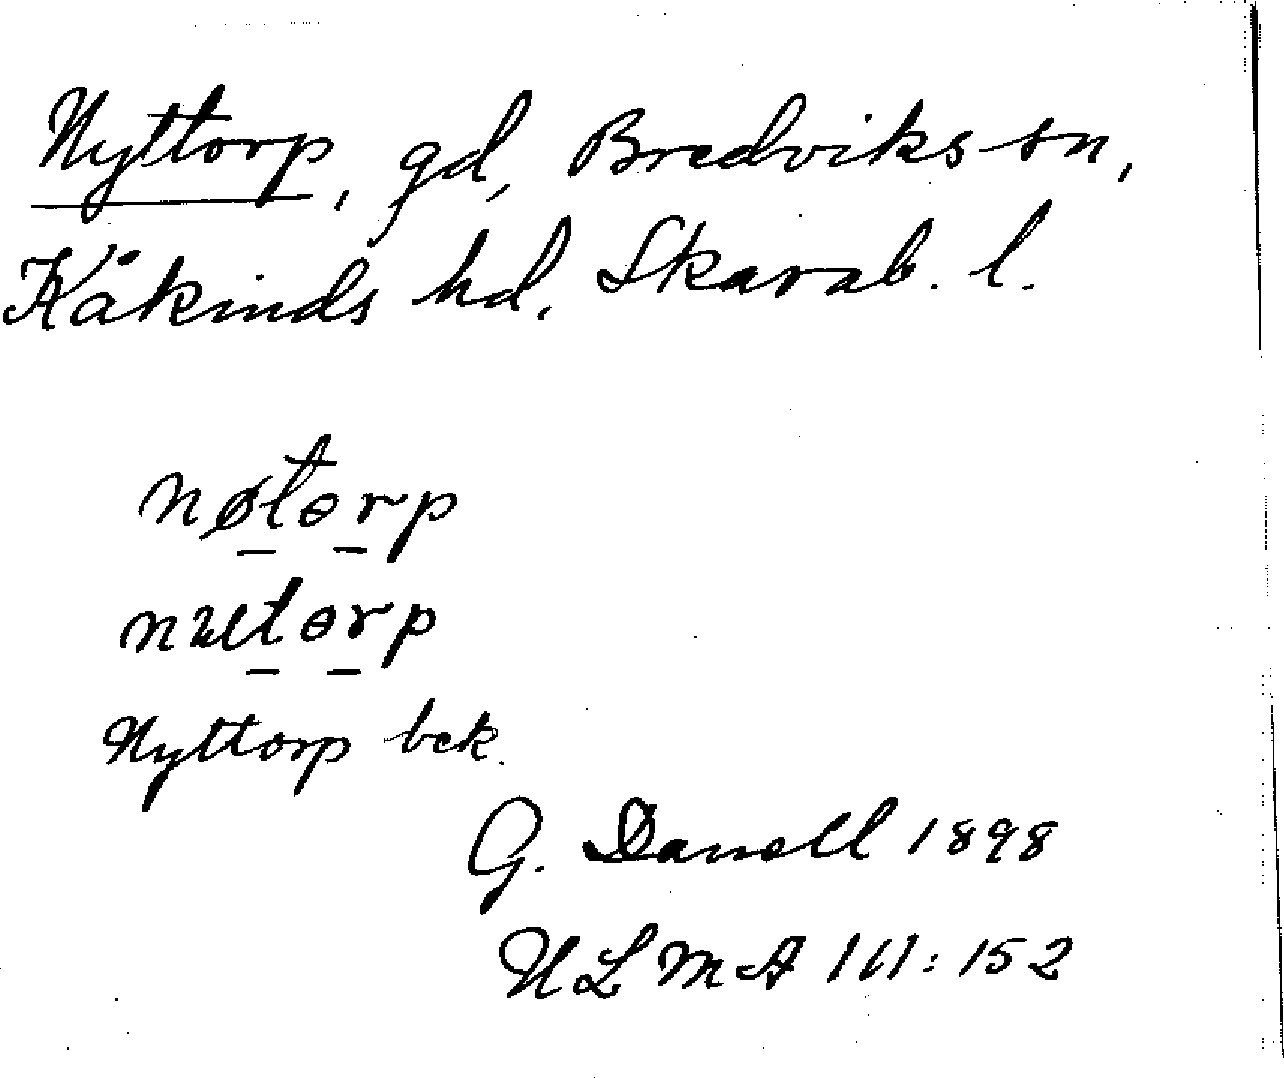 Nyttorp, gd, Bredviks sn,
Kåkinds hd, Skarab. l.
nøtɵrp
nʉtɵrp
Nyttorp bek.
G. Danell 1898
ULMA 111:152